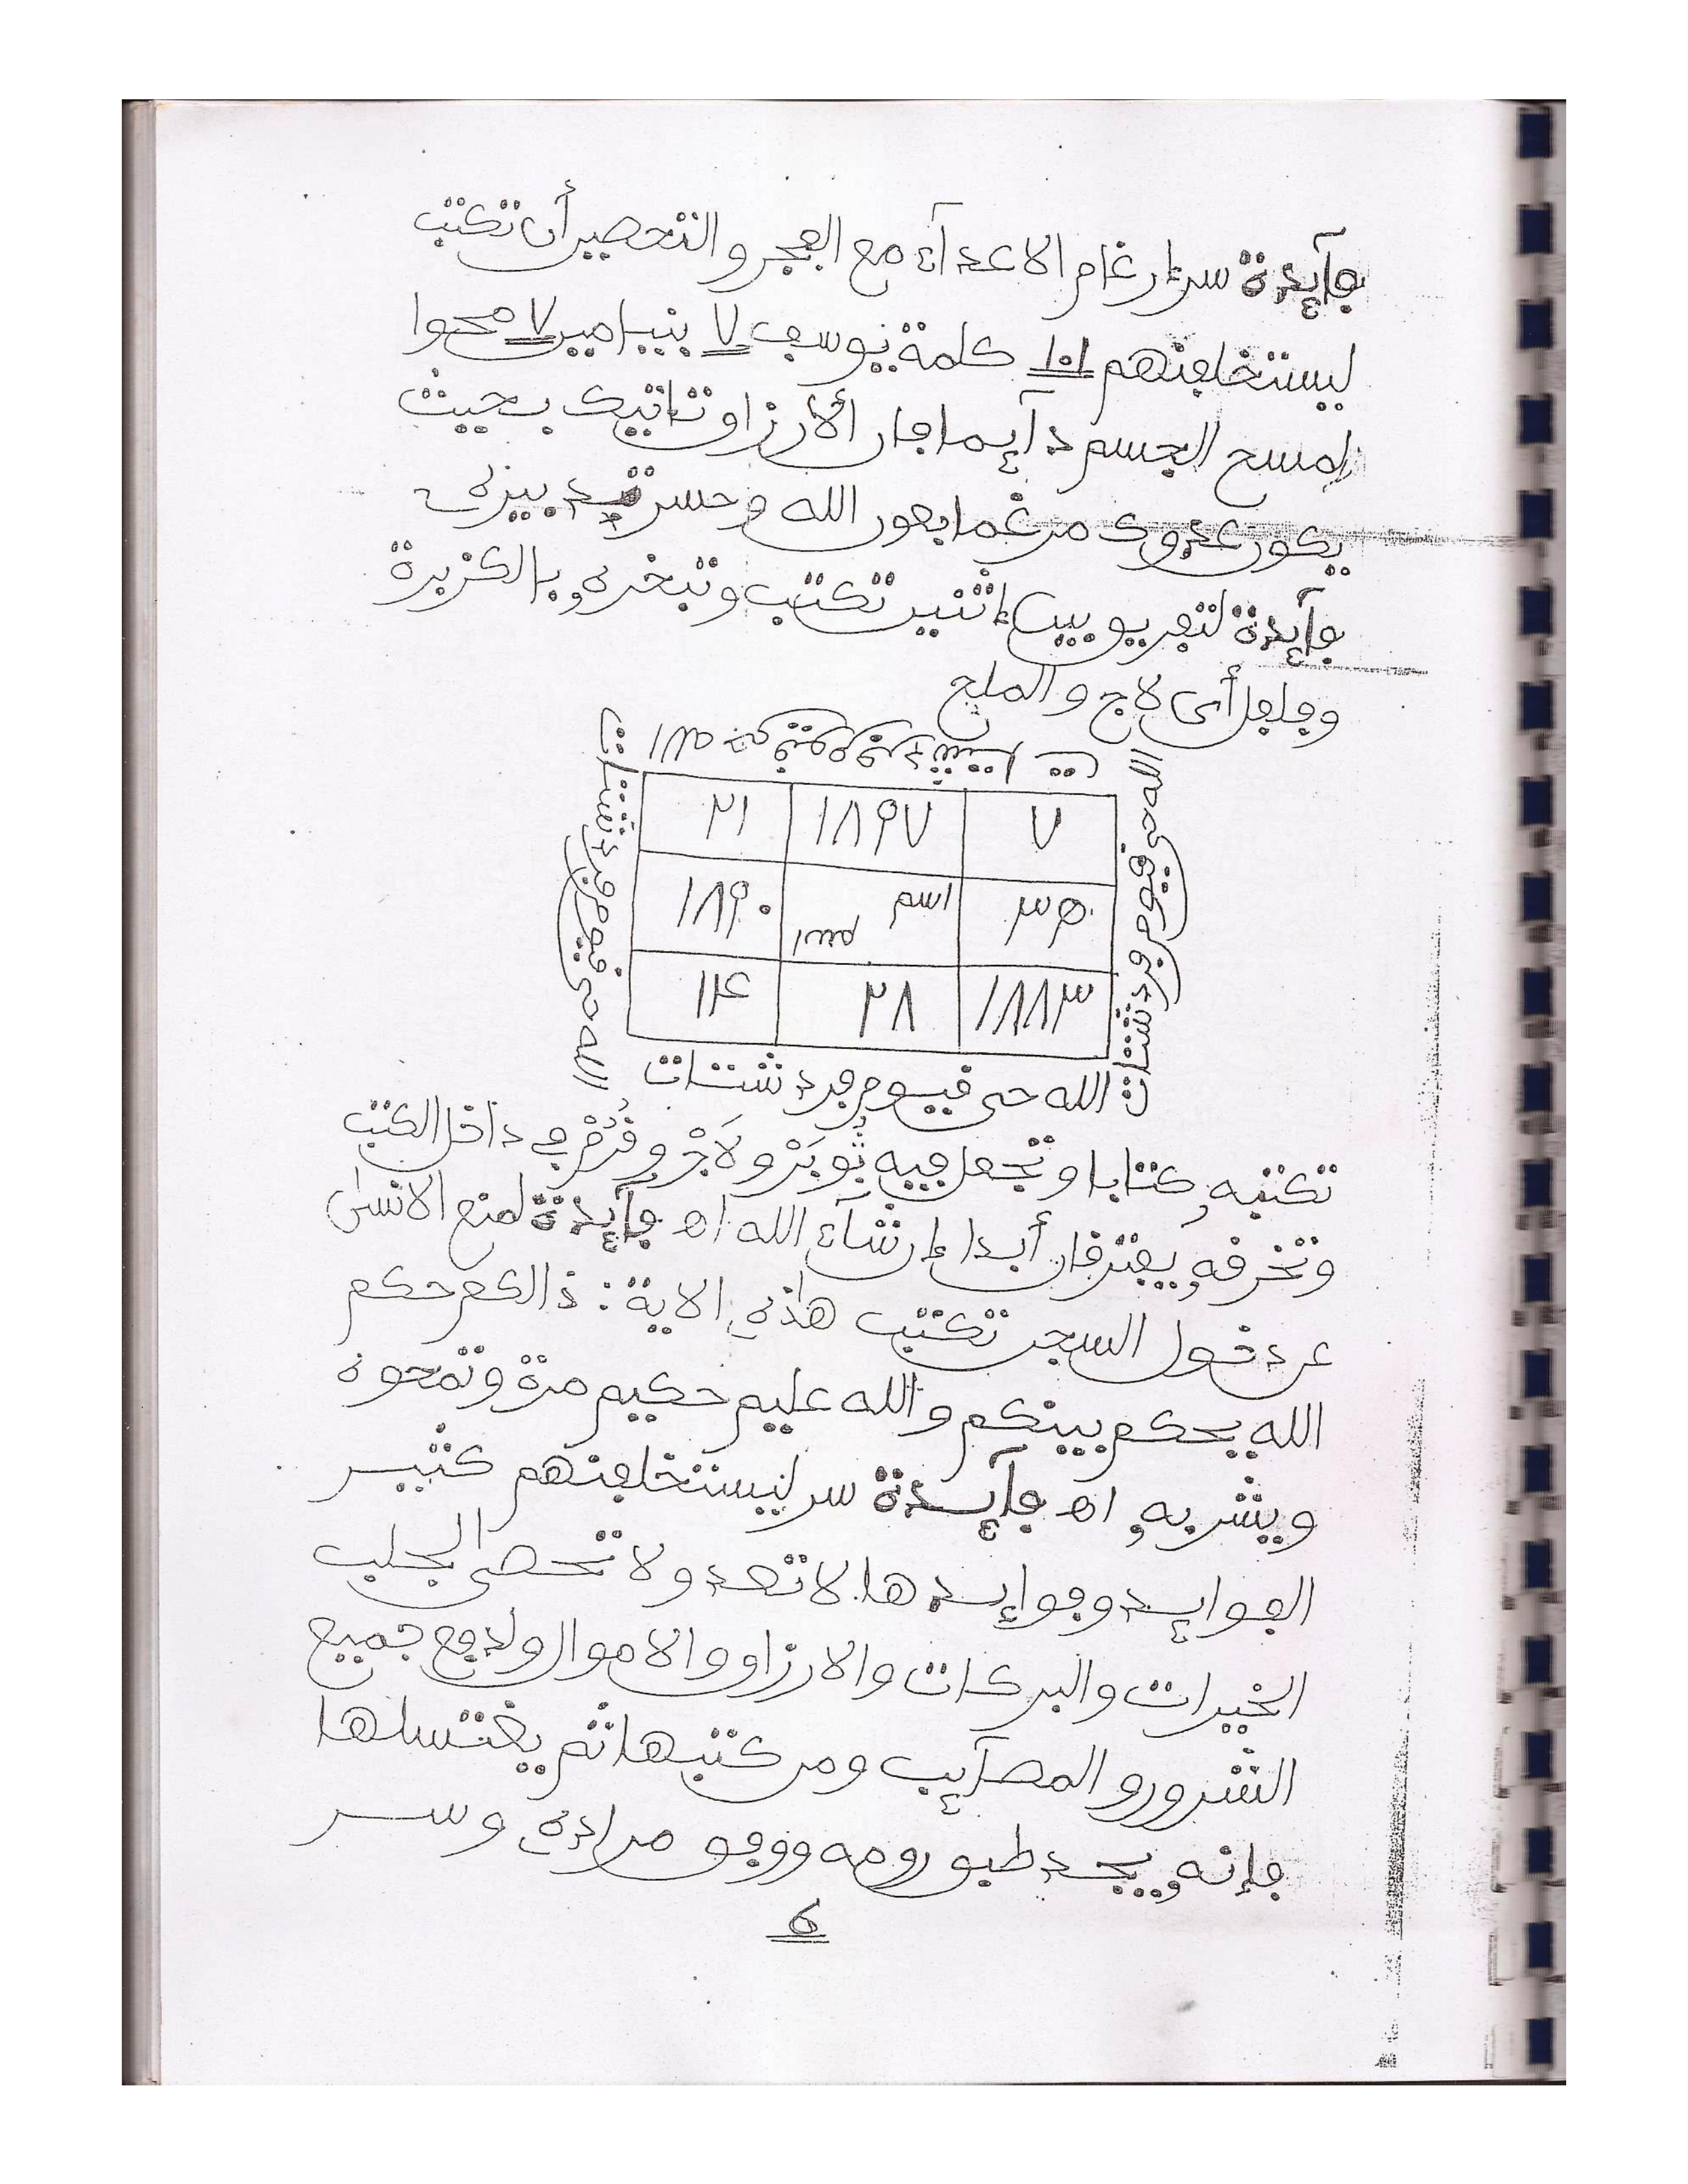 فآئدة سر إرغام الاعدآء مع الفجر والتحصير أن تكتب
ليستخلفنهم ١٠١ كلمة يوسف ٧ بنيامين ٧ محوا
لمسح الجسم دآئما فإن ألارزاق تاتيك بحيث
يكون عدوك مرغما بعون الله وحسن تدبيره
فآئدة لتفريق بين إثنين تكتب وتبخره بالكزبرة
وفلفل أى لاج والملح
الله حي قيوم فرد شتات
الله حي قيوم فرد شتات
الله حي قيوم فرد شتات
٧ ١٨٩٧ ٢١
٣٥ اسم اسم ١٨٩٠
١٨٨٣ ٢٨ ١٤
الله حي قيوم فرد شتات
تكتبه كتابا وتجعل فيه ثوبَرْ ولَاجْ وقُرُمْ في داخل الكتب
وتحرقه يفترقان أبدا إن شآء الله اه فآئدة لمنع الانسان
عن دخول السجن تكتب هاذه الاية : ذالكم حكم
الله يحكم بينكم والله عليم حكيم مرة وتمحوه
ويشربه اه فآئدة سر ليستخلفنهم كثير
الفوايد وفوائدها لا تعد ولا تحصى لجلب
الخيرات والبركات والارزاق والاموال ولدفع جميع
الشرور والمصآئب ومن كتبها ثم يغتسلها
فإنه يجد طبق رومه ووفق مراده وسر
6